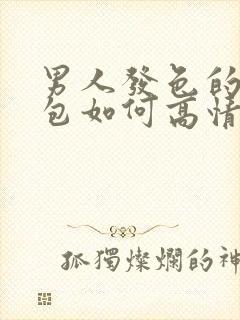 男人發色的
包如何高情
孤獨燦爛的神